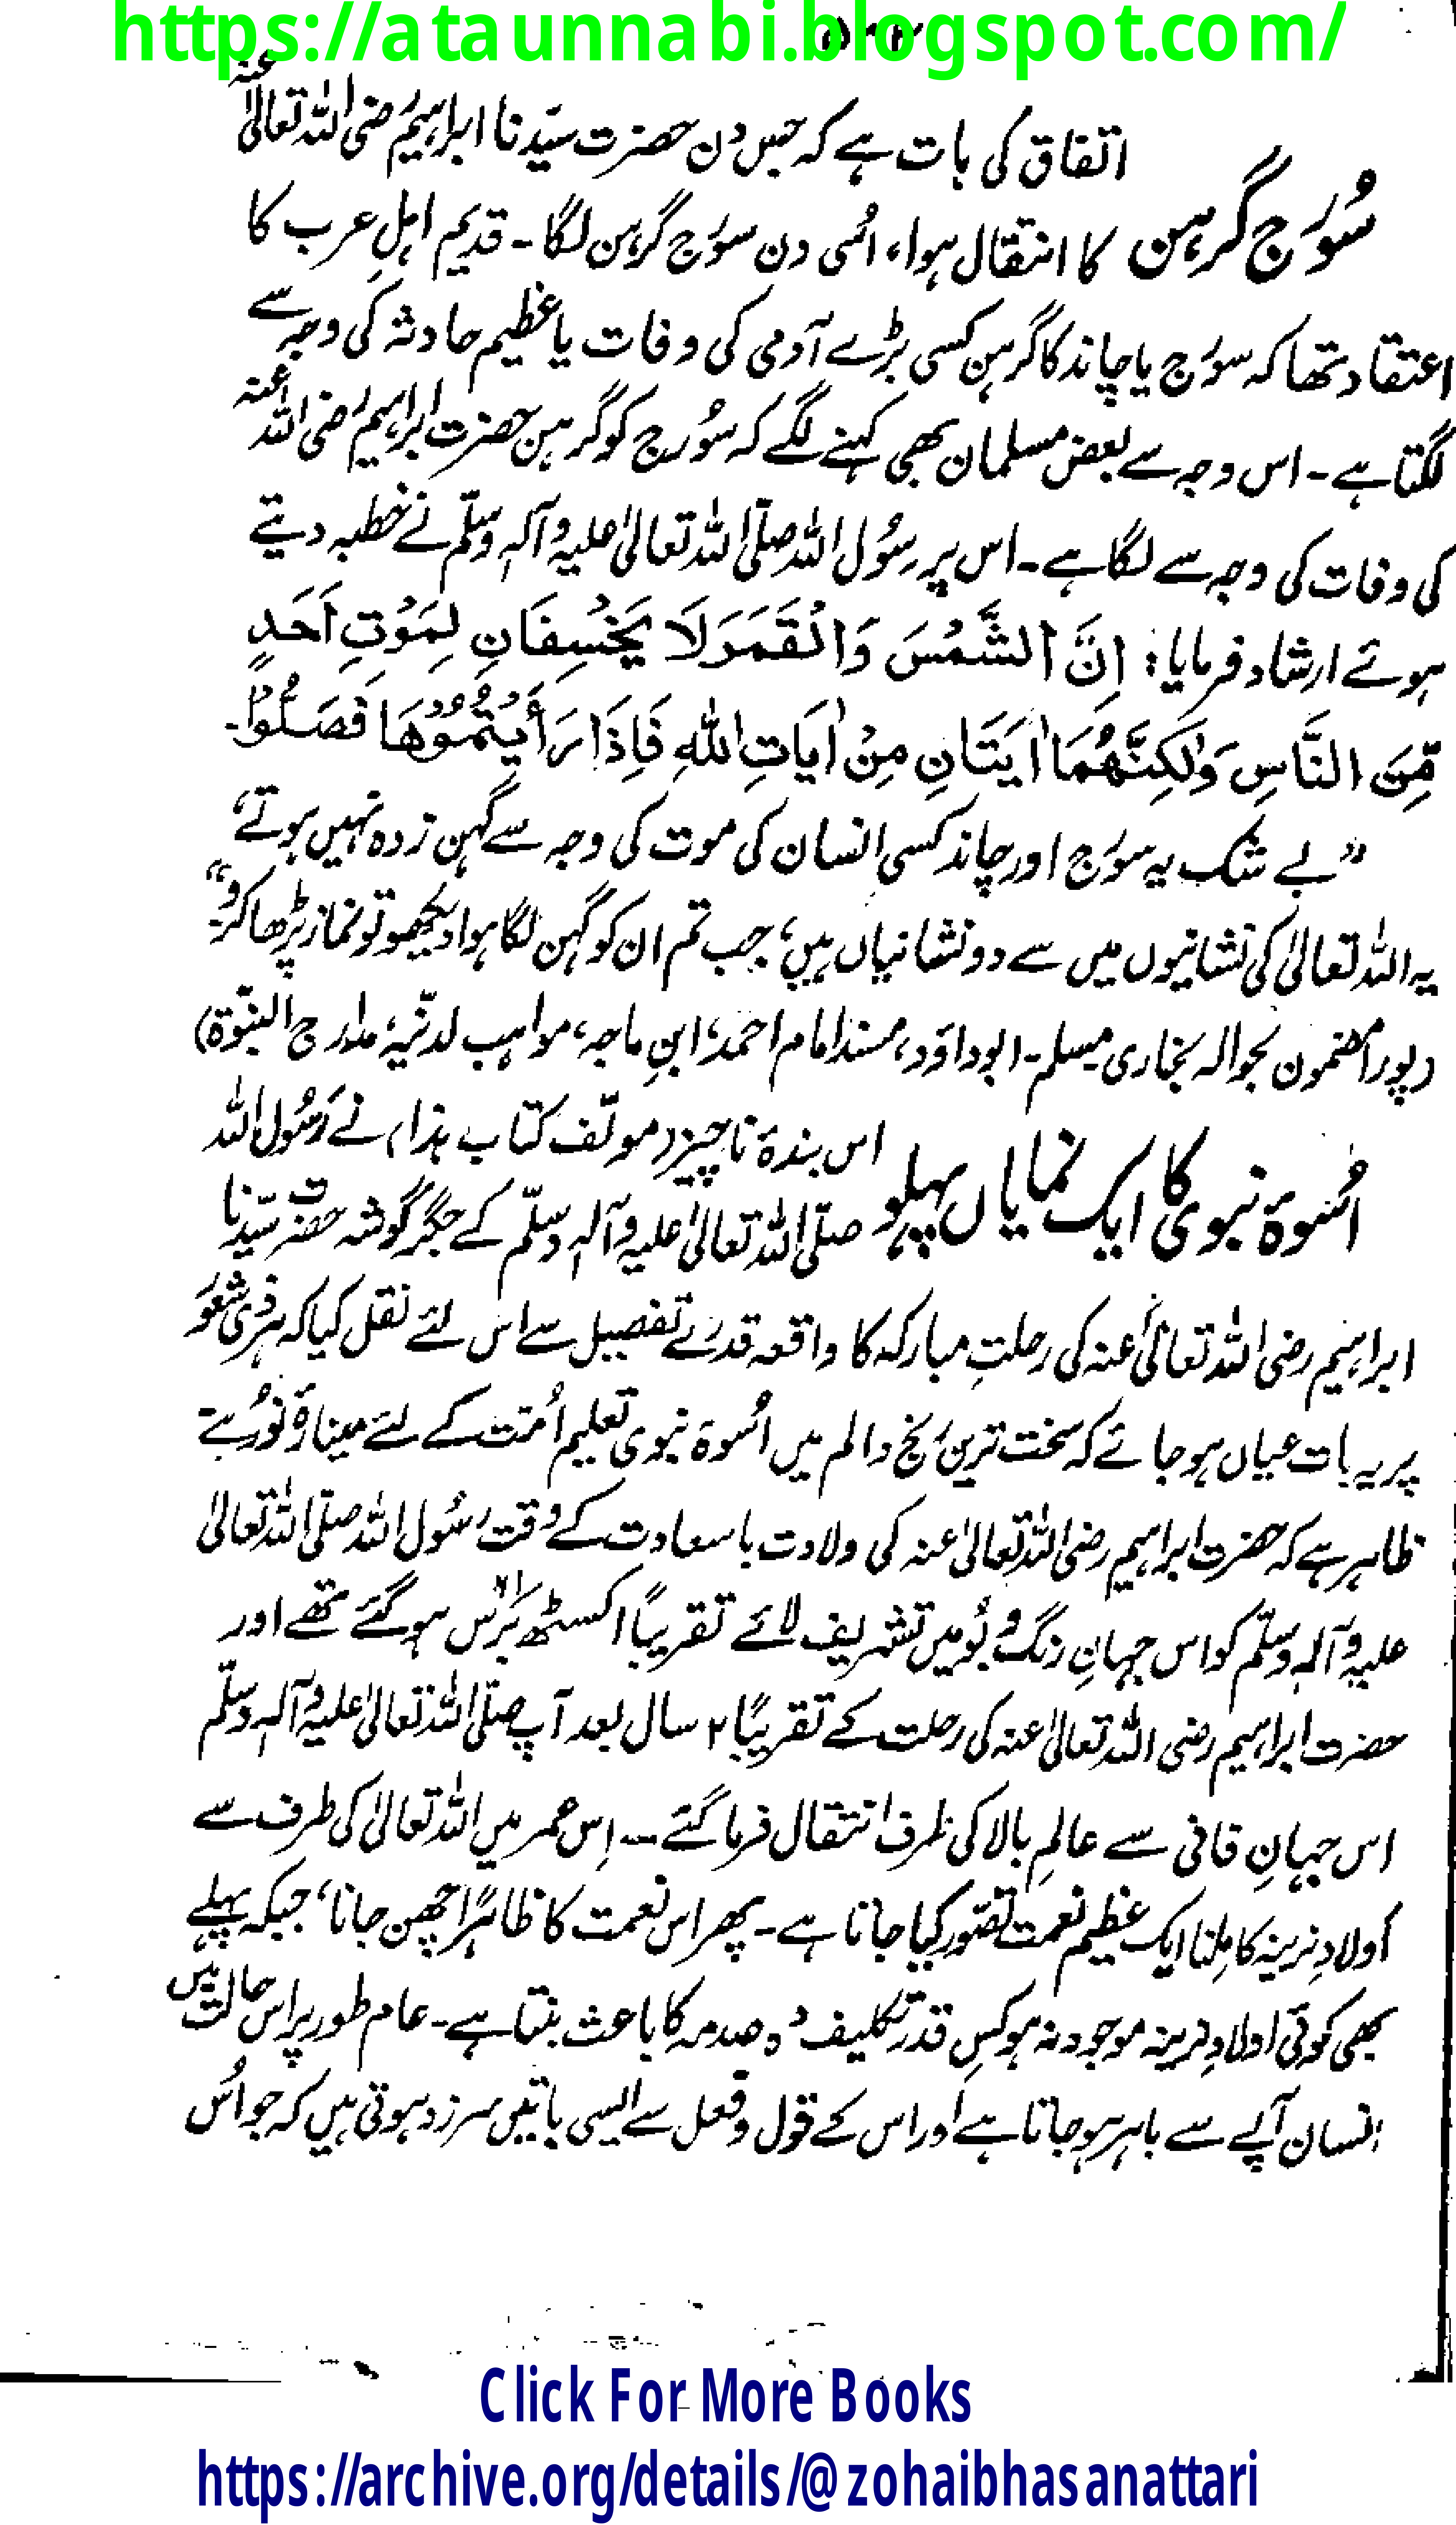 https://ataunnabi.blogspot.com/
اتفاق کی بات ہے کہ جس دن حضرت سیّدنا ابراہیم رضی اللہ تعالیٰ عنہ
سُورج گرہن کا انتقال ہوا، اُسی دن سورج گرہن لگا۔ قدیم اہلِ عرب کا
اعتقاد تھا کہ سورج یا چاند کا گرہن کسی بڑے آدمی کی وفات یا عظیم حادثہ کی وجہ سے
لگتا ہے۔ اس وجہ سے بعض مسلمان بھی کہنے لگے کہ سُورج کو گرہن حضرت ابراہیم رضی اللہ عنہ
کی وفات کی وجہ سے لگا ہے۔ اس پر رسُول اللہ صلّی اللہ تعالیٰ علیہ وآلہٖ وسلّم نے خطبہ دیتے
ہوئے ارشاد فرمایا: اِنَّ الشَّمْسَ وَالْقَمَرَ لَا يَخْسِفَانِ لِمَوْتِ اَحَدٍ
مِّنَ النَّاسِ وَلٰكِنَّهُمَا اٰيَتَانِ مِنْ اٰيَاتِ اللّٰهِ فَاِذَا رَأَيْتُمُوْهَا فَصَلُّوْا۔
”بے شک یہ سورج اور چاند کسی انسان کی موت کی وجہ سے گہن زدہ نہیں ہوتے،
یہ اللہ تعالیٰ کی نشانیوں میں سے دو نشانیاں ہیں؛ جب تم ان کو گہن لگا ہوا دیکھو تو نماز پڑھا کرو۔“
(پورا مضمون بحوالہ بخاری۔ مسلم۔ ابوداؤد، مسند امام احمد، ابنِ ماجہ، مواہب لدنّیہ، مدارج النبوّۃ)
اس بندۂ ناچیز (مولّف کتاب ہذا) نے رَسُول اللہ
اُسوۂ نبوی کا ایک نمایاں پہلو صلّی اللہ تعالیٰ علیہ وآلہٖ وسلّم کے جگر گوشہ حضرت سیّدنا
ابراہیم رضی اللہ تعالیٰ عنہ کی رحلتِ مبارکہ کا واقعہ قدرے تفصیل سے اس لئے نقل کیا کہ ہر ذی شعور
پر یہ بات عیاں ہو جائے کہ سخت ترین رنج والم میں اُسوۂ نبوی تعلیم اُمت کے لئے مینارۂ نور ہے
ظاہر ہے کہ حضرت ابراہیم رضی اللہ تعالیٰ عنہ کی ولادت باسعادت کے وقت رسُول اللہ صلّی اللہ تعالیٰ
علیہ وآلہٖ وسلّم کو اس جہانِ رنگ و بُو میں تشریف لائے تقریباً اکسٹھ برس ہو گئے تھے اور
حضرت ابراہیم رضی اللہ تعالیٰ عنہ کی رحلت کے تقریباً ۲ سال بعد آپ صلّی اللہ تعالیٰ علیہ وآلہٖ وسلّم
اس جہانِ فانی سے عالمِ بالا کی طرف انتقال فرما گئے۔ اِس عمر میں اللہ تعالیٰ کی طرف سے
اولادِ نرینہ کا مِلنا ایک عظیم نعمت تصّور کیا جاتا ہے۔ پھر اس نعمت کا ظاہراً چھن جانا، جبکہ پہلے
بھی کوئی اولادِ نرینہ موجود نہ ہو کس قدر تکلیف دہ صدمہ کا باعث بنتا ہے۔ عام طور پر اس حالت میں
انسان آپے سے باہر ہو جاتا ہے اور اس کے قول و فعل سے ایسی باتیں سرزد ہوتی ہیں کہ جو اُس
Click For More Books
https://archive.org/details/@zohaibhasanattari